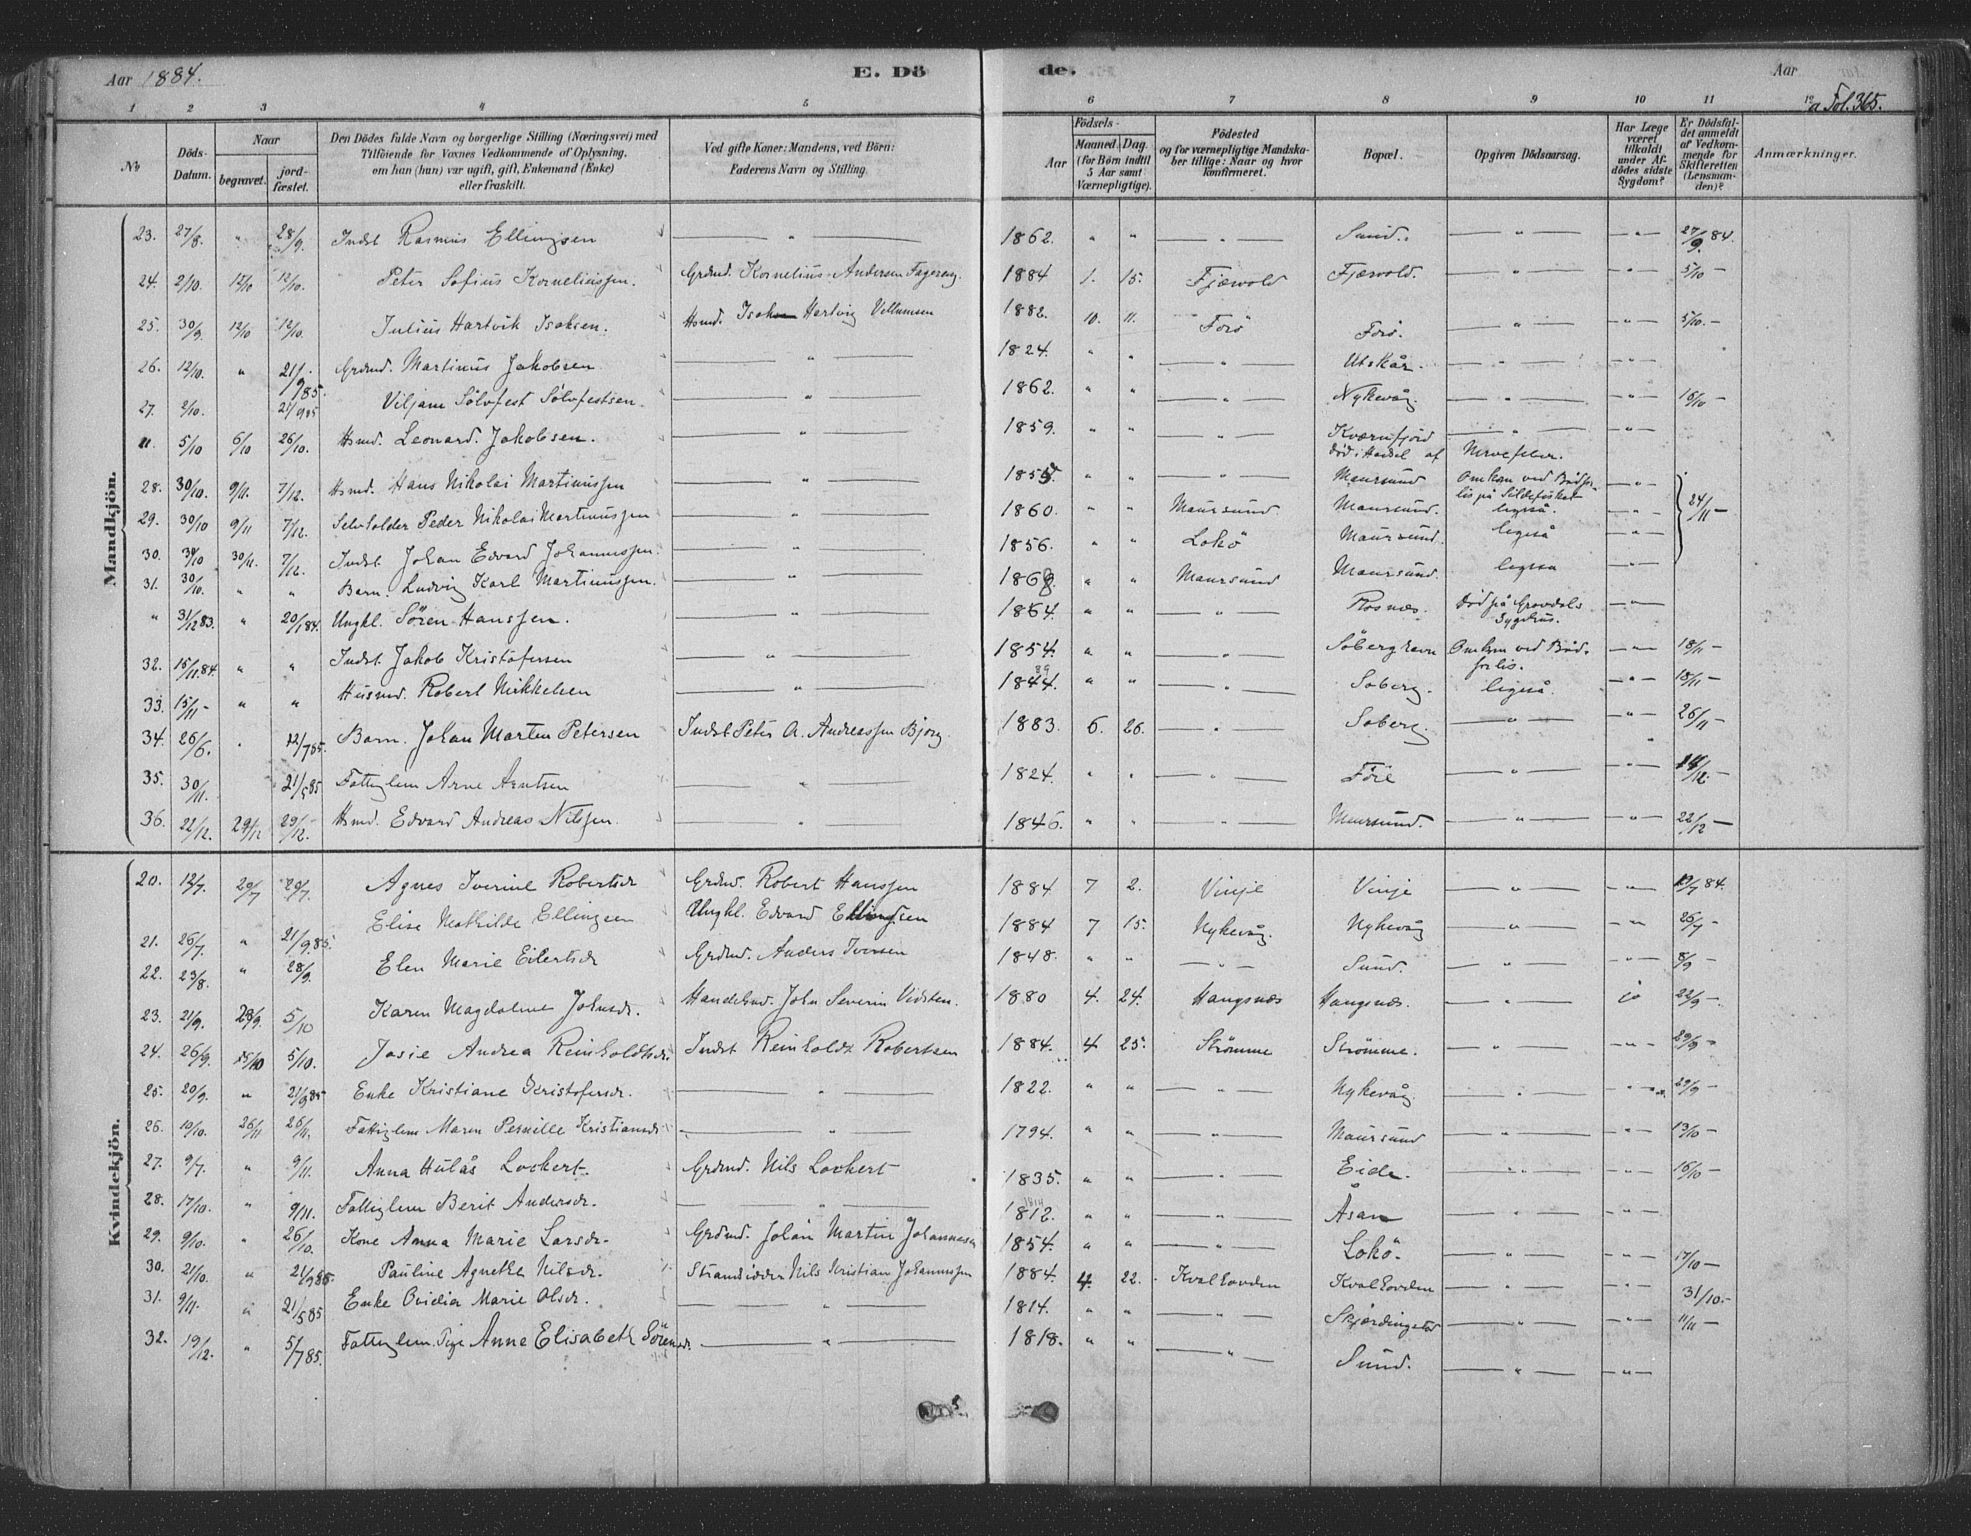 Aar 1884. E. Dö
de. Aar
a Fol. 365.
1 2 3 4 5
6 7 8 9 10 11 12
No.
Döds-Datum.
Naar
begravet.
jord-fæstet.
Den Dödes fulde Navn og borgerlige Stilling (Næringsvei) med
Tilföiende for Voxnes Vedkommende af Oplysning,
om han (hun) var ugift, gift, Enkemand (Enke)
eller fraskilt.
Ved gifte Koner: Mandens, ved Börn:
Faderens Navn og Stilling.
Födsels-
Aar
Maaned. Dag.
(for Börn indtil
5 Aar samt
Værnepligtige).
Födested
og for værnepligtige Mandska-
ber tillige: Naar og hvor
konfirmeret.
Bopæl.
Opgiven Dödsaarsag.
Har Læge
været
tilkaldt
under Af-
dödes sidste
Sygdom?
Er Dödsfal-
det anmeldt
af Vedkom-
mende for
Skifteretten
(Lensman-
den)?
Anmærkninger.
Mandkjön.
23. 27/8. " 28/9. Indst Rasmus Ellingsen " 1862. " " " Sund. " " 27/9 84.
24. 2/10. 12/10 12/10. Peter Sofius Korneliussen. Grdmd. Kornelius Andersen Fagereng. 1884 1. 15. Fjærvold Fjærvold. " " 5/10 —
25. 30/9. 12/10 12/10. Julius Hartvik Isaksen. Hsmd. Isak Hartvig Vellumsen 1882. 10. 11. Forö Forö. " " 5/10. —
26. 12/10. " 21/9 85. Grdmd. Martinus Jakobsen " 1824. " " " Utskår. " "
27. 2/10. 21/9 85 Viljam Sölvfest Sölvfestsen. " 1862. " " " Nykevåg. " " 16/10 —
11. 5/10 6/10 26/10. Hsmd. Leonard Jakobsen. " 1859. " " " Kværnfjord " "
död i Hadsel af Nervefeber.
28. 30/10. 9/11. 7/12. Hsmd. Hans Nikolai Martinussen " 1855 " " " Maursund Omkom ved Bådfor- "
lis på Sildefisket
29. 30/10 9/11 7/12. Selvholder Peder Nikolai Martinussen " 1860. " " Maursund. Maursund. ligeså. " 24/11 —
30. 30/10 30/11. 7/12. Indst Johan Edvard Johannessen. " 1856. " " Lokö Maursund. ligeså "
31. 30/10. " " Barn Ludvig Karl Martinussen. " 1868. " " Maursund Maursund. ligesa "
" 31/12 83. " 20/1 84. Ungkl. Sören Hanssen. " 1864. " " " Rosnæs. Död på Gravdals "
Sygehus.
32. 15/11. 84. " " Indst. Jakob Kristofersen " 1854. " " " Söberghavn Omkom ved Båd- " 18/11 —
forlis.
33. 15/11 — " " Husmd. Robert Mikkelsen " 1844. " " " Soberg. ligeså. " 18/11 —
34. 26/6. " 12/7 85. Barn. Johan Martin Petersen Indst Peter A. Andreassen Bjørg 1883 6. 26. " Soberg " " 26/11 —
35. 30/11. 21/5 85 Fattiglem Arne Arntsen " 1824. " " " Före " " 14/12. —
36. 22/12. 29/12 29/12. Hsmd. Edvard Andreas Nilssen. " 1846. " " " Maursund. " " 22/12 —
Kvindekjön.
20. 12/7. 20/7 20/7. Agnes Iverine Robertsdr Grdmd. Robert Hanssen 1884 7 2. Vinje Vinje " " 19/7 84.
21. 26/7. " 21/9. 85. Elise Mathilde Ellingsen Ungkl. Edvard Ellingsen 1884 7 15. Nykevåg. Nykevåg " " 26/7 —
22. 23/8. " 28/9. Elen Marie Eilertsdr Grdmd. Anders Iversen 1848. " " " Sund. " " 8/9 —
23. 21/9. 28/9. 5/10 Karen Magdalene Johnsdr. Handelsmd. John Severin Vidsten. 1880 4. 24. Haugsnæs Haugsnæs. " ja 22/9 —
24. 26/9. 15/10 5/10. Josie Andrea Reinholdtsdr. Indst Reinholdt Robertsen 1884. 4 25. Strömme Strömme. " " 29/9 —
25. 20/9. " 21/9 85 Enke Kristiane Kristofersdr. " 1822. " " " Nykevåg " " 29/9 —
26. 10/10. 26/11 26/11. Fattiglem Maren Pernille Kristiansdr " 1794. " " " Maursund " " 13/10 —
27. 9/7. " 9/11. Anna Hulås Lockert. Grdmd. Nils Lockert 1835. " " " Eide. " " 16/10 —
28. 17/10. " 9/11. Fattiglem Berit Andersdr. " 1812. " " " Åsan " "
29. 9/10. " 26/10. Kone Anna Marie Larsdr. Grdmd. Johan Martin Johannesen 1854. " " " Lokö. " " 17/10 —
30. 21/10. " 21/9 85. Pauline Agnethe Nilsdr. Strandsidder Nils Kristian Johannessen 1884. 4. 22. Kvalhovden Kvalhovden " " 31/10. —
31. 9/11. " 21/5 85 Enke Ovidia Marie Olsdr. " 1814. " " " Skjærdingstad " " 11/11 —
32. 19/12. " 5/7 85. Fattiglem. Pige Anne Elisabeth Sörensdr. " 1818. " " " Sund. " "